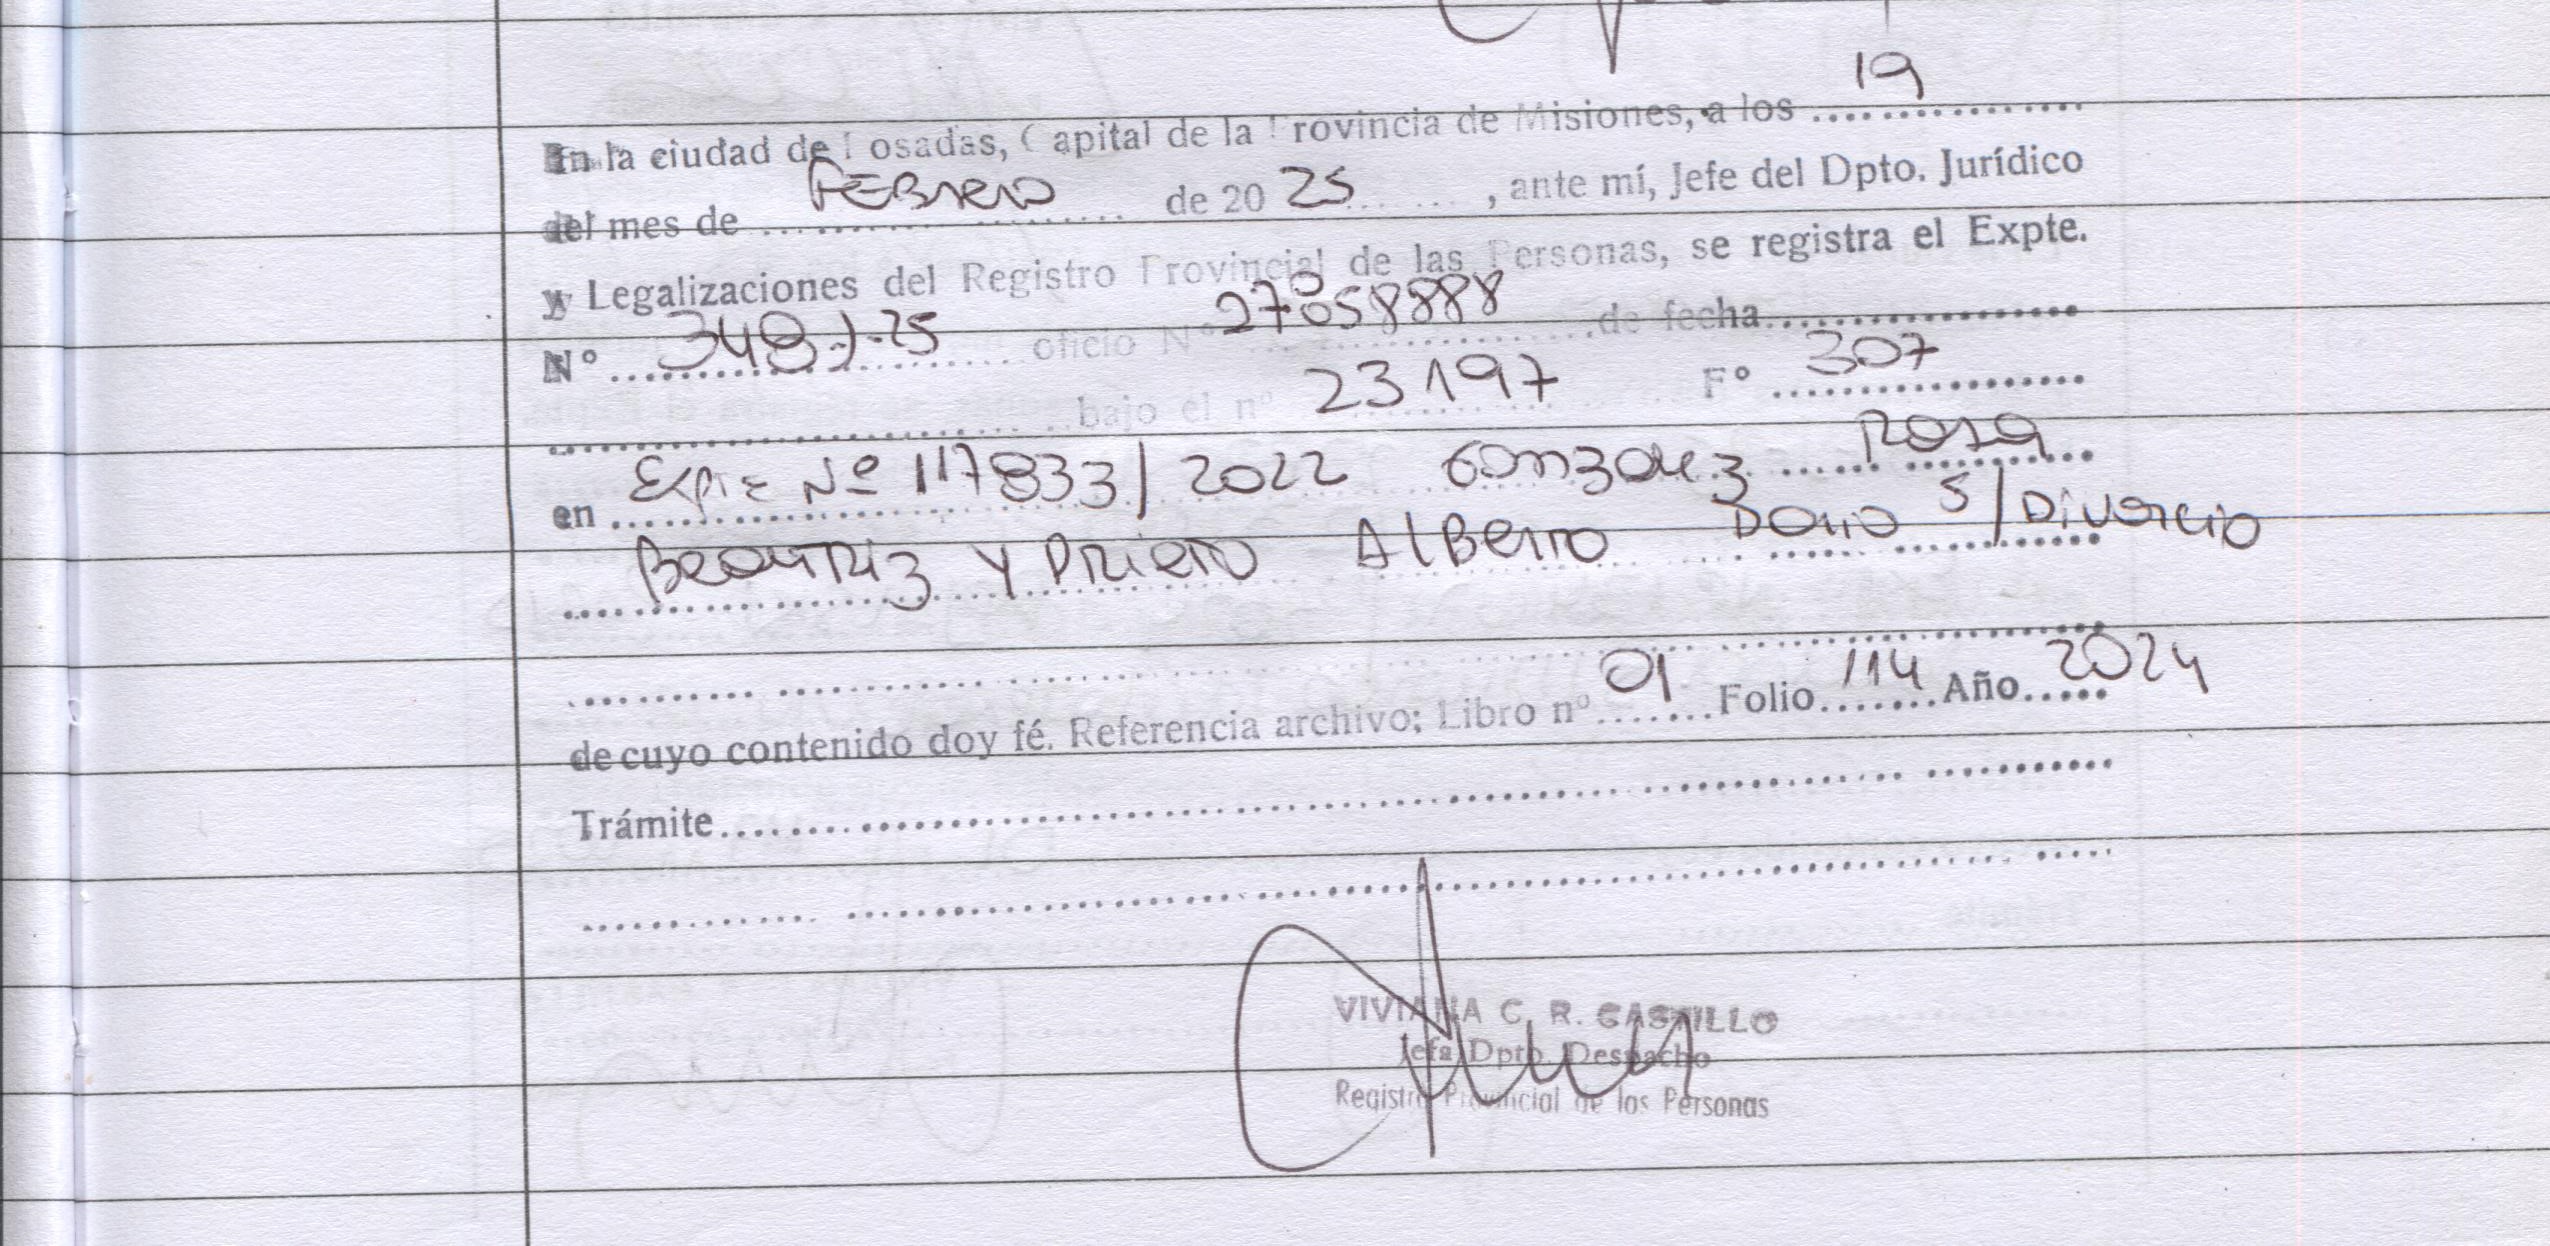 En la ciudad de Posadas, Capital de la Provincia de Misiones, a los 19
del mes de FEBRERO de 20 25, ante mí, Jefe del Dpto. Jurídico
y Legalizaciones del Registro Provincial de las Personas, se registra el Expte.
N° 348-J-25 oficio N° 27058888 de fecha
bajo el n° 23197 F° 307
en Expte Nº 117833/2022 Gonzalez Rosa
Beatriz y Prieto Alberto Dario S/Divorcio
de cuyo contenido doy fé. Referencia archivo; Libro n° 01 Folio 114 Año 2024
Trámite
VIVIANA C. R. CASTILLO
Jefa Dpto. Despacho
Registro Provincial de las Personas